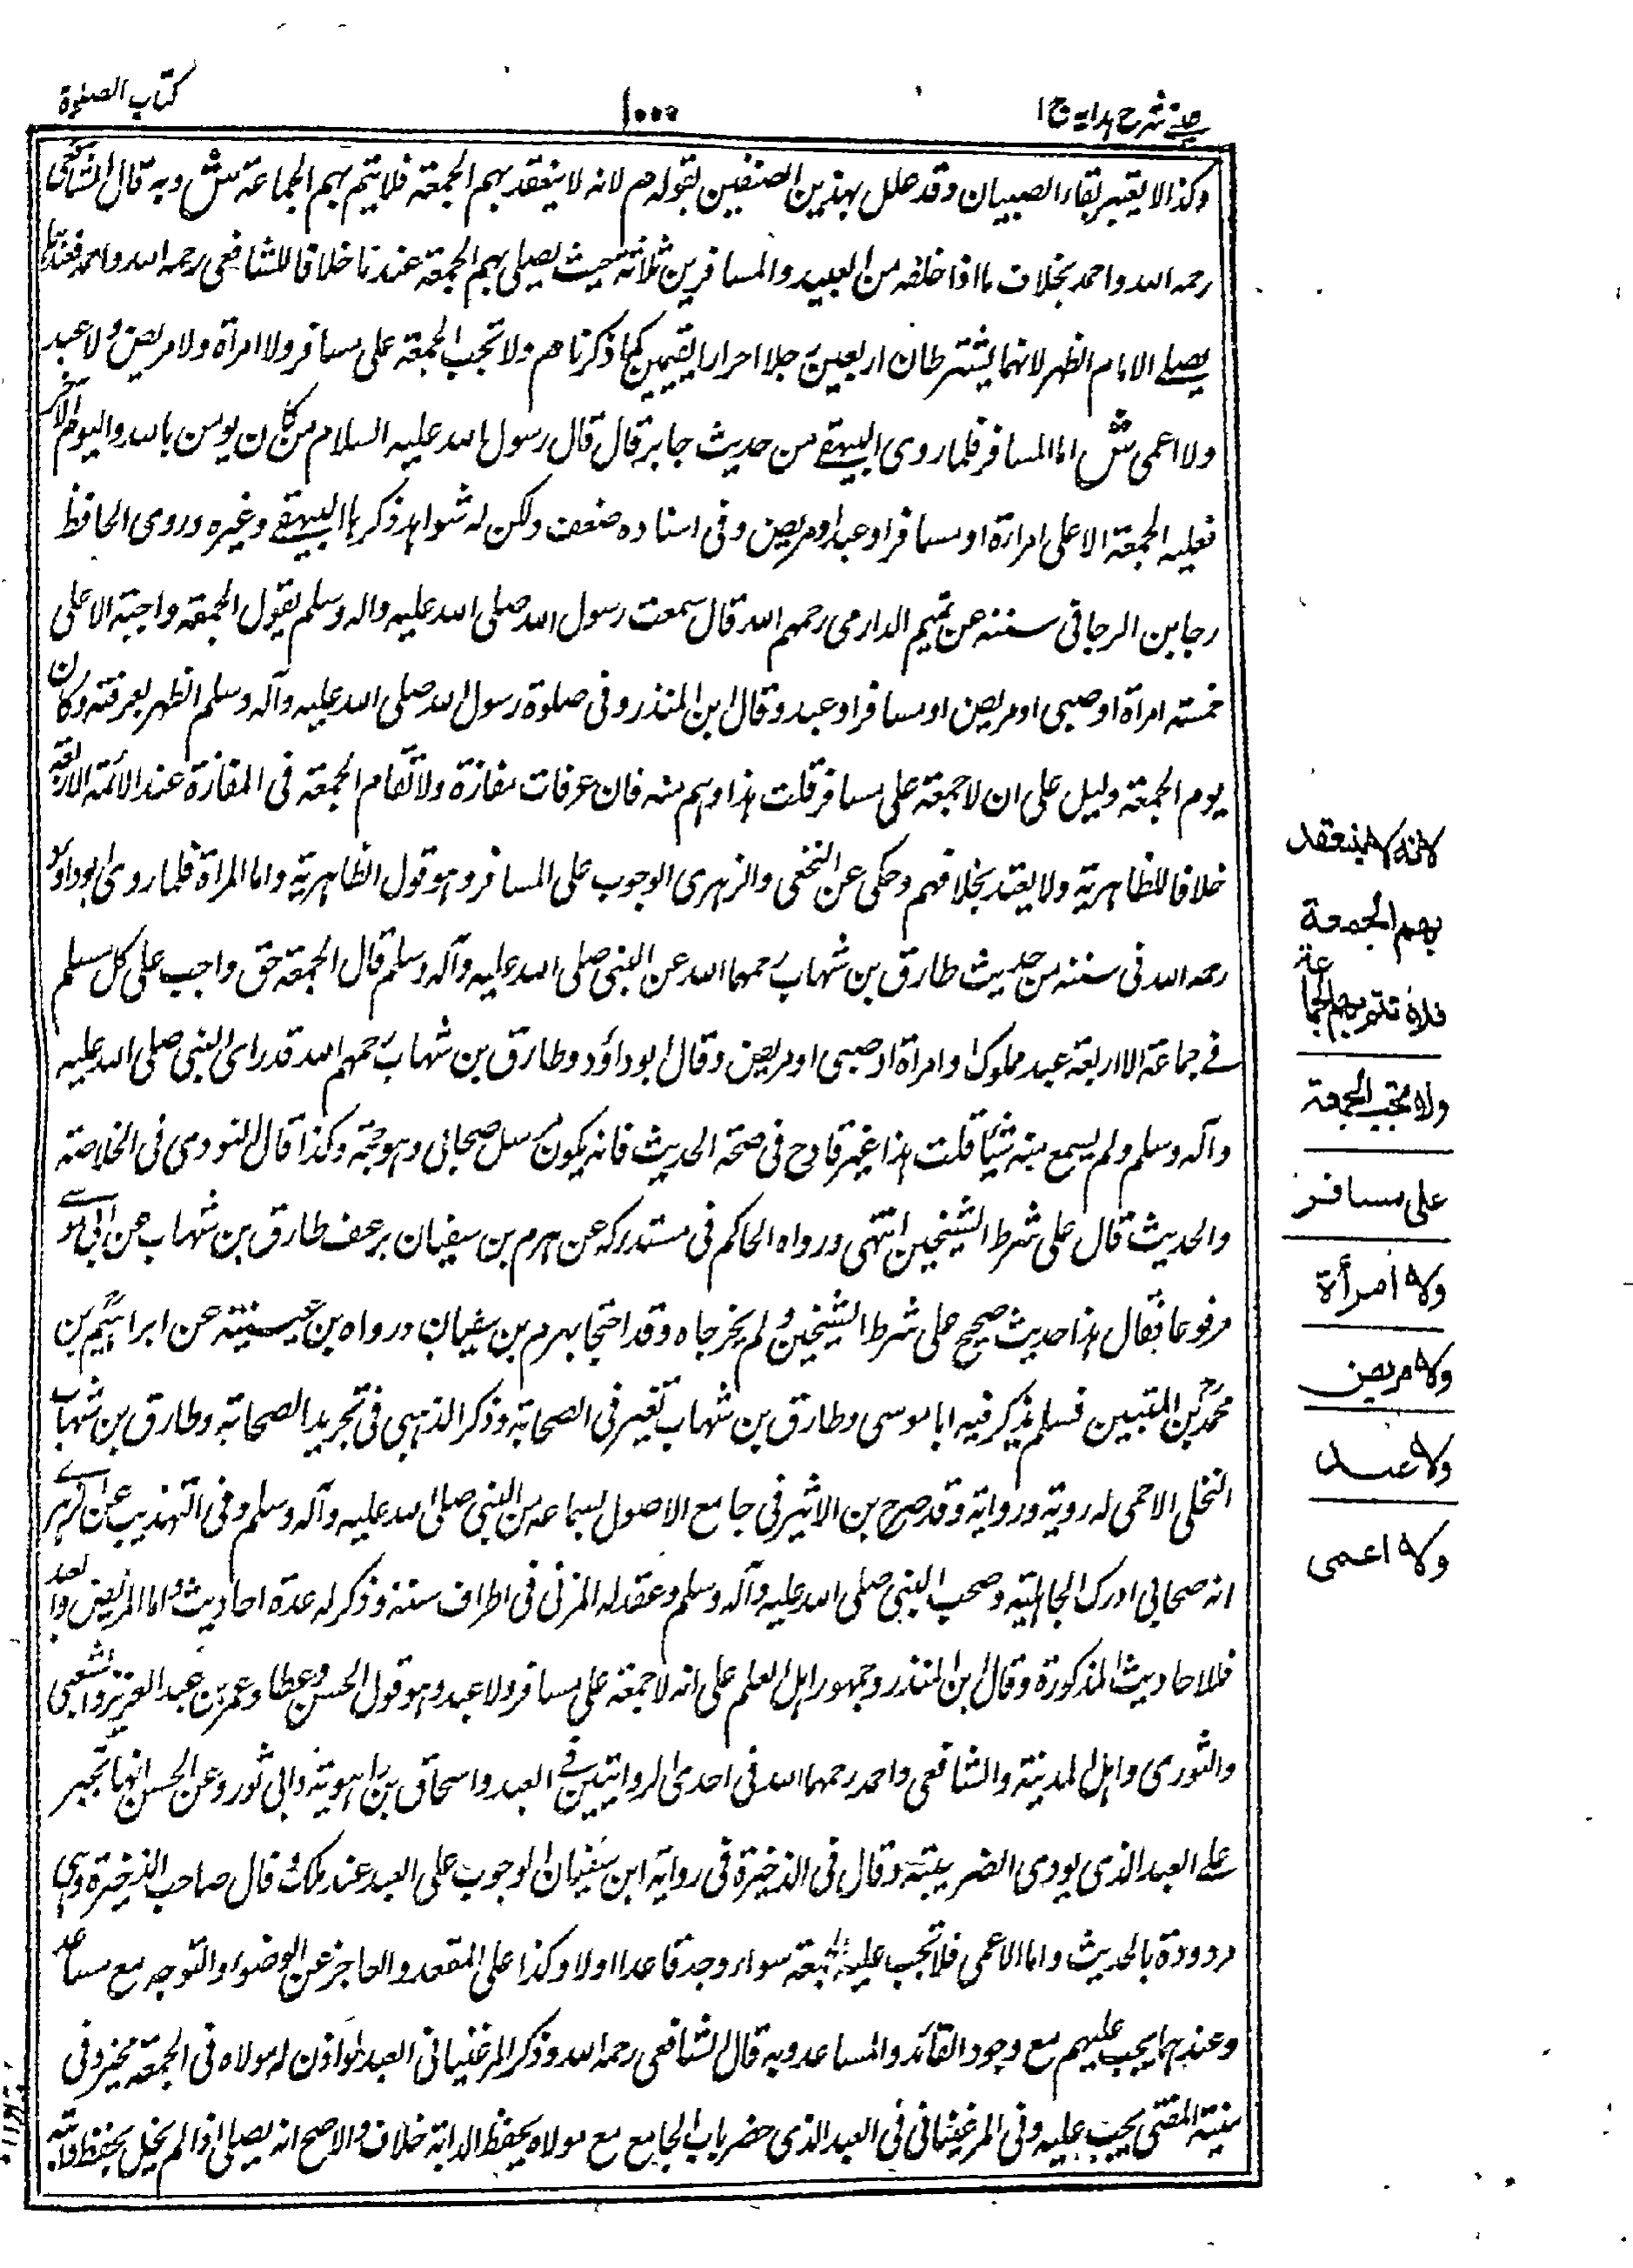 عينى شرح هدايه ج ١
١٠٠٠
كتاب الصلوة
وكذا لا يعتبر بقاء الصبيان وقد علل بهذين الصنفين بقوله هم لانه لا ينعقد بهم الجمعة فلا يتم بهم الجماعة ش وبه قال الشافعى
رحمه الله واحمد بخلاف ما اذا خلفه من العبيد والمسافرين ثلاثة حيث يصلى بهم الجمعة عندنا خلافا للشافعى رحمه الله واحمد فعندهما
يصلى الامام الظهر لانهما يشترطان اربعين رجلا احرارا مقيمين كما ذكرنا هم ولا تجب الجمعة على مسافر ولا امرأة ولا مريض ولا عبد
ولا اعمى ش اما المسافر فلما روى البيهقى من حديث جابر قال قال رسول الله عليه السلام من كان يومن بالله واليوم الآخر
فعليه الجمعة الا على امراة او مسافر او عبد او مريض وفى اسناده ضعف ولكن له شواهد ذكرها البيهقى وغيره وروى الحافظ
رجا بن الرجا فى سننه عن تميم الدارمى رحمهم الله قال سمعت رسول الله صلى الله عليه واله وسلم يقول الجمعة واجبة الا على
خمسة امراة او صبى او مريض او مسافر او عبد وقال ابن المنذر وفى صلوة رسول الله صلى الله عليه وآله وسلم الظهر بعرفة وكان
يوم الجمعة دليل على ان لا جمعة على مسافر قلت هذا وهم منه فان عرفات مفازة ولا تقام الجمعة فى المفازة عند الائمة الاربعة
خلافا للظاهرية ولا يعتد بخلافهم وحكى عن النخعى والزهرى الوجوب على المسافر وهو قول الظاهرية واما المرأة فلما روى ابوداؤد
رحمه الله فى سننه من حديث طارق بن شهاب رحمهما الله عن النبى صلى الله عليه وآله وسلم قال الجمعة حق واجب على كل مسلم
فى جماعة الا اربعة عبد مملوك او امراة او صبى او مريض وقال ابوداؤد وطارق بن شهاب رحمهم الله قد راى النبى صلى الله عليه
وآله وسلم ولم يسمع منه شيئا قلت هذا غير قادح فى صحة الحديث فانه يكون مرسل صحابى وهو حجة وكذا قال النووى فى الخلاصة
والحديث قال على شرط الشيخين انتهى ورواه الحاكم فى مستدركه عن هرم بن سفيان برعف طارق بن شهاب عن ابى موسى
مرفوعا فقال هذا حديث صحيح على شرط الشيخين ولم يخرجاه وقد احتجا بهرم بن سفيان ورواه بن عيينة عن ابراهيم بن
محمد بن المتبين فسلم يذكر فيه ابا موسى وطارق بن شهاب تغير فى الصحابة وذكر الذهبى فى تجريد الصحابة وطارق بن شهاب
النخلى الاحمى له روية ورواية وقد صرح بن الاثير فى جامع الاصول بسماعه من النبى صلى الله عليه وآله وسلم وفى التهذيب عن
انه صحابى ادرك الجاهلية وصحب النبى صلى الله عليه وآله وسلم وعقد له المزنى فى اطراف سننه وذكر له عدة احاديث واما المريض والعبد
فللاحاديث المذكورة وقال ابن المنذر وجمهور اهل العلم على انه لا جمعة على مسافر ولا عبد وهو قول الحسن وعطا وعمر بن عبد العزيز والشعبى
والثورى واهل المدينة والشافعى واحمد رحمهما الله فى احدى الروايتين فى العبد واسحاق بن راهوية وابى ثور وعن الحسن انها تجبر
على العبد الذى يودى الضريبة وقال فى الذخيرة فى رواية ابن سفيان الوجوب على العبد عند ملك قال صاحب الذخيرة وهى
مردودة بالحديث واما الاعمى فلا تجب عليه الجمعة سواء وجد قاعدا اولا وكذا على المقعد والعاجز عن الوضوء والتوجه مع مساعد
وعندهما يجب عليهم مع وجود القائد والمساعد وبه قال الشافعى رحمه الله وذكر المرغنيانى العبد لو اذن له مولاه فى الجمعة يخير وفى
منية المفتى يجب عليه وفى المرغينانى فى العبد الذى حضر باب الجامع مع مولاه يحفظ الدابة خلاف والاصح انه يصلى اذا لم يخل بحفظ دابته
لانه لا ينعقد
بهم الجمعة
فلا تتم بهم الجماعة
ولا تجب الجمعة
على مسافر
ولا امرأة
ولا مريض
ولا عبد
ولا اعمى